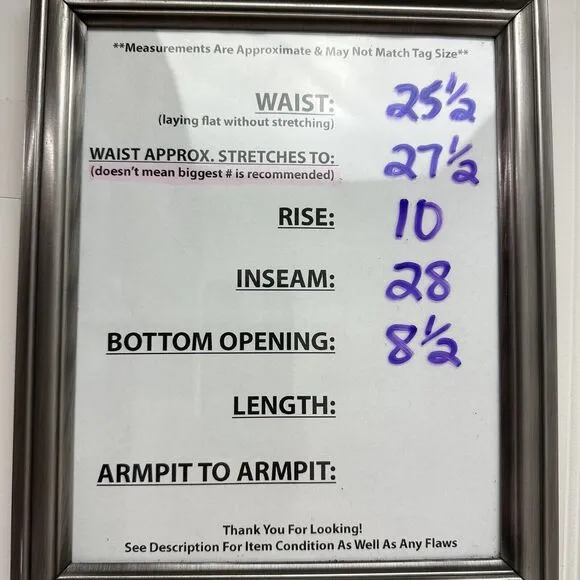 **Measurements Are Approximate & May Not Match Tag Size**
WAIST: 25 1/2
(laying flat without stretching)
WAIST APPROX. STRETCHES TO: 27 1/2
(doesn't mean biggest # is recommended)
RISE: 10
INSEAM: 28
BOTTOM OPENING: 8 1/2
LENGTH:
ARMPIT TO ARMPIT:
Thank You For Looking!
See Description For Item Condition As Well As Any Flaws